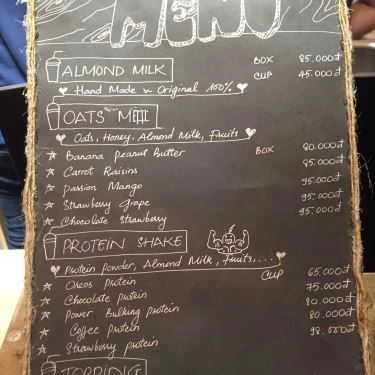 MENU
ALMOND MILK BOX 85.000đ
CUP 45.000đ
Hand Made ~ Original 100%
OATS
Oats, Honey, Almond Milk, Fruits
Banana Peanut Butter BOX 80.000đ
Carrot Raisins 85.000đ
Passion Mango 95.000đ
Strawberry Grape 95.000đ
Chocolate Strawberry 95.000đ
PROTEIN SHAKE
Protein powder, Almond Milk, Fruits....
Oreos Protein CUP 65.000đ
Chocolate protein 75.000đ
Power Bulking protein 80.000đ
Coffee protein 80.000đ
Strawberry protein 98.000đ
TOPPING